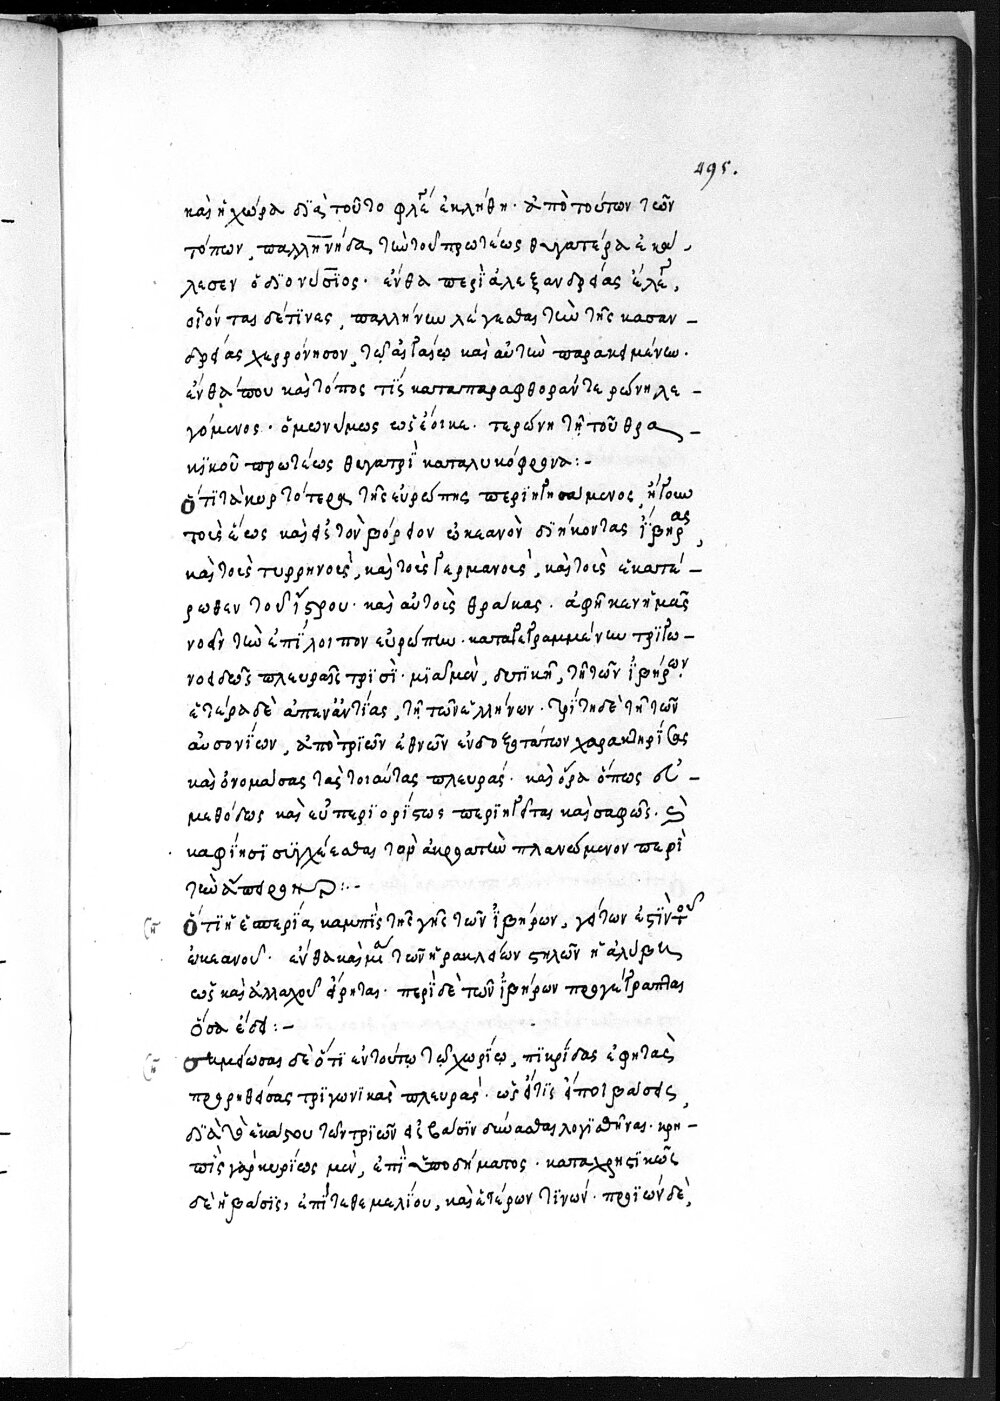 495.
καὶ ἡ χώρα διὰ τοῦτο φλέγρα ἐκλήθη· ἀπὸ τούτων τῶν
τόπων, παλληνηΐδα τὴν τοῦ πρωτέως θυγατέρα ἐκά,
λεσεν ὁ διονύσιος· ἔνθα περὶ ἀλεξανδρείας ἔλεγε,
οἴονται δέ τινες, παλλήνην λέγεσθαι τὴν τῆς κασαν-
δρείας χερρόνησον, καὶ αὐτὴν παρακειμένων.
ἔνθά που καὶ τόπος τίς κατὰ παραφθορὰν τερώνη λε-
γόμενος· ὁμωνύμως ὡς ἔοικε τερώνη τῇ τοῦ θρα-
κικοῦ πρωτέως θυγατρὶ κατὰ λυκόφρονα:-
Ὅτι τὰ κυρτότερα τῆς εὐρώπης περιηγησάμενος, ἤγουν
τοὺς ἕως καὶ εἰς τὸν βόρειον ὠκεανὸν διήκοντας ἴβηρας,
καὶ τοὺς τυρρηνοὺς, καὶ τοὺς γερμανοὺς, καὶ τοὺς ἑκατέ-
ρωθεν τοῦ ἴστρου· καὶ αὐτοὺς θρᾶκας. ἀφῆκεν ἡμᾶς
νοεῖν τὴν ἐπίλοιπον εὐρώπην· καταγεγραμμένην τριγω-
νοειδῶς πλευραῖς τρισὶ· μιᾷ μὲν, δυτικῇ, τῇ τῶν ἰβήρων·
ἑτέρα δὲ ἀπεναντίας, τῇ τῶν ἑλλήνων· τρίτη δὲ τῇ τῶν
αὐσονίων, ἀπὸ τριῶν ἐθνῶν ἐνδοξοτάτων χαρακτηρίσας
καὶ ὀνομάσας τὰς τοιαύτας πλευράς· καὶ ὅρα ὅπως εὐ-
μεθόδως καὶ εὐπεριορίστως περιηγεῖται καὶ σαφῶς. οὐ
καφίησι συγχέεσθαι τὸν ἀκροατὴν πλανώμενον περὶ
τὴν ἄπειρον γῆν:--
Ὅτι ἡ ἑσπερία καμπὶς τῆς γῆς τῶν ἰβήρων, γείτων ἐστὶν τοῦ
ὠκεανοῦ· ἔνθα καὶ μία τῶν ἡρακλείων στηλῶν ἡ ἀλύβη
ὡς καὶ ἀλλαχοῦ εἴρηται· περὶ δὲ τῶν ἰβήρων προγέγραπται
ὅσα ἔδει:-
σημείωσαι δὲ ὅτι ἐν τούτῳ τῷ χωρίῳ, πικρίδας ἔφη τὰς
προρηθείσας τριγωνικὰς πλευράς· ὡς εἴ τις εἴποι βάσεις,
διὰ τὸ ἑκάστου τῶν τριῶν εἰς βάσιν δύνασθαι λογισθῆναι· κρη-
πὶς γὰρ κυρίως μὲν, ἐπὶ ὑποδήματος· καταχρηστικῶς
δὲ ἡ βάσις, ἐπί τε θεμελίου, καὶ ἑτέρων τινῶν· προϊὼν δὲ,